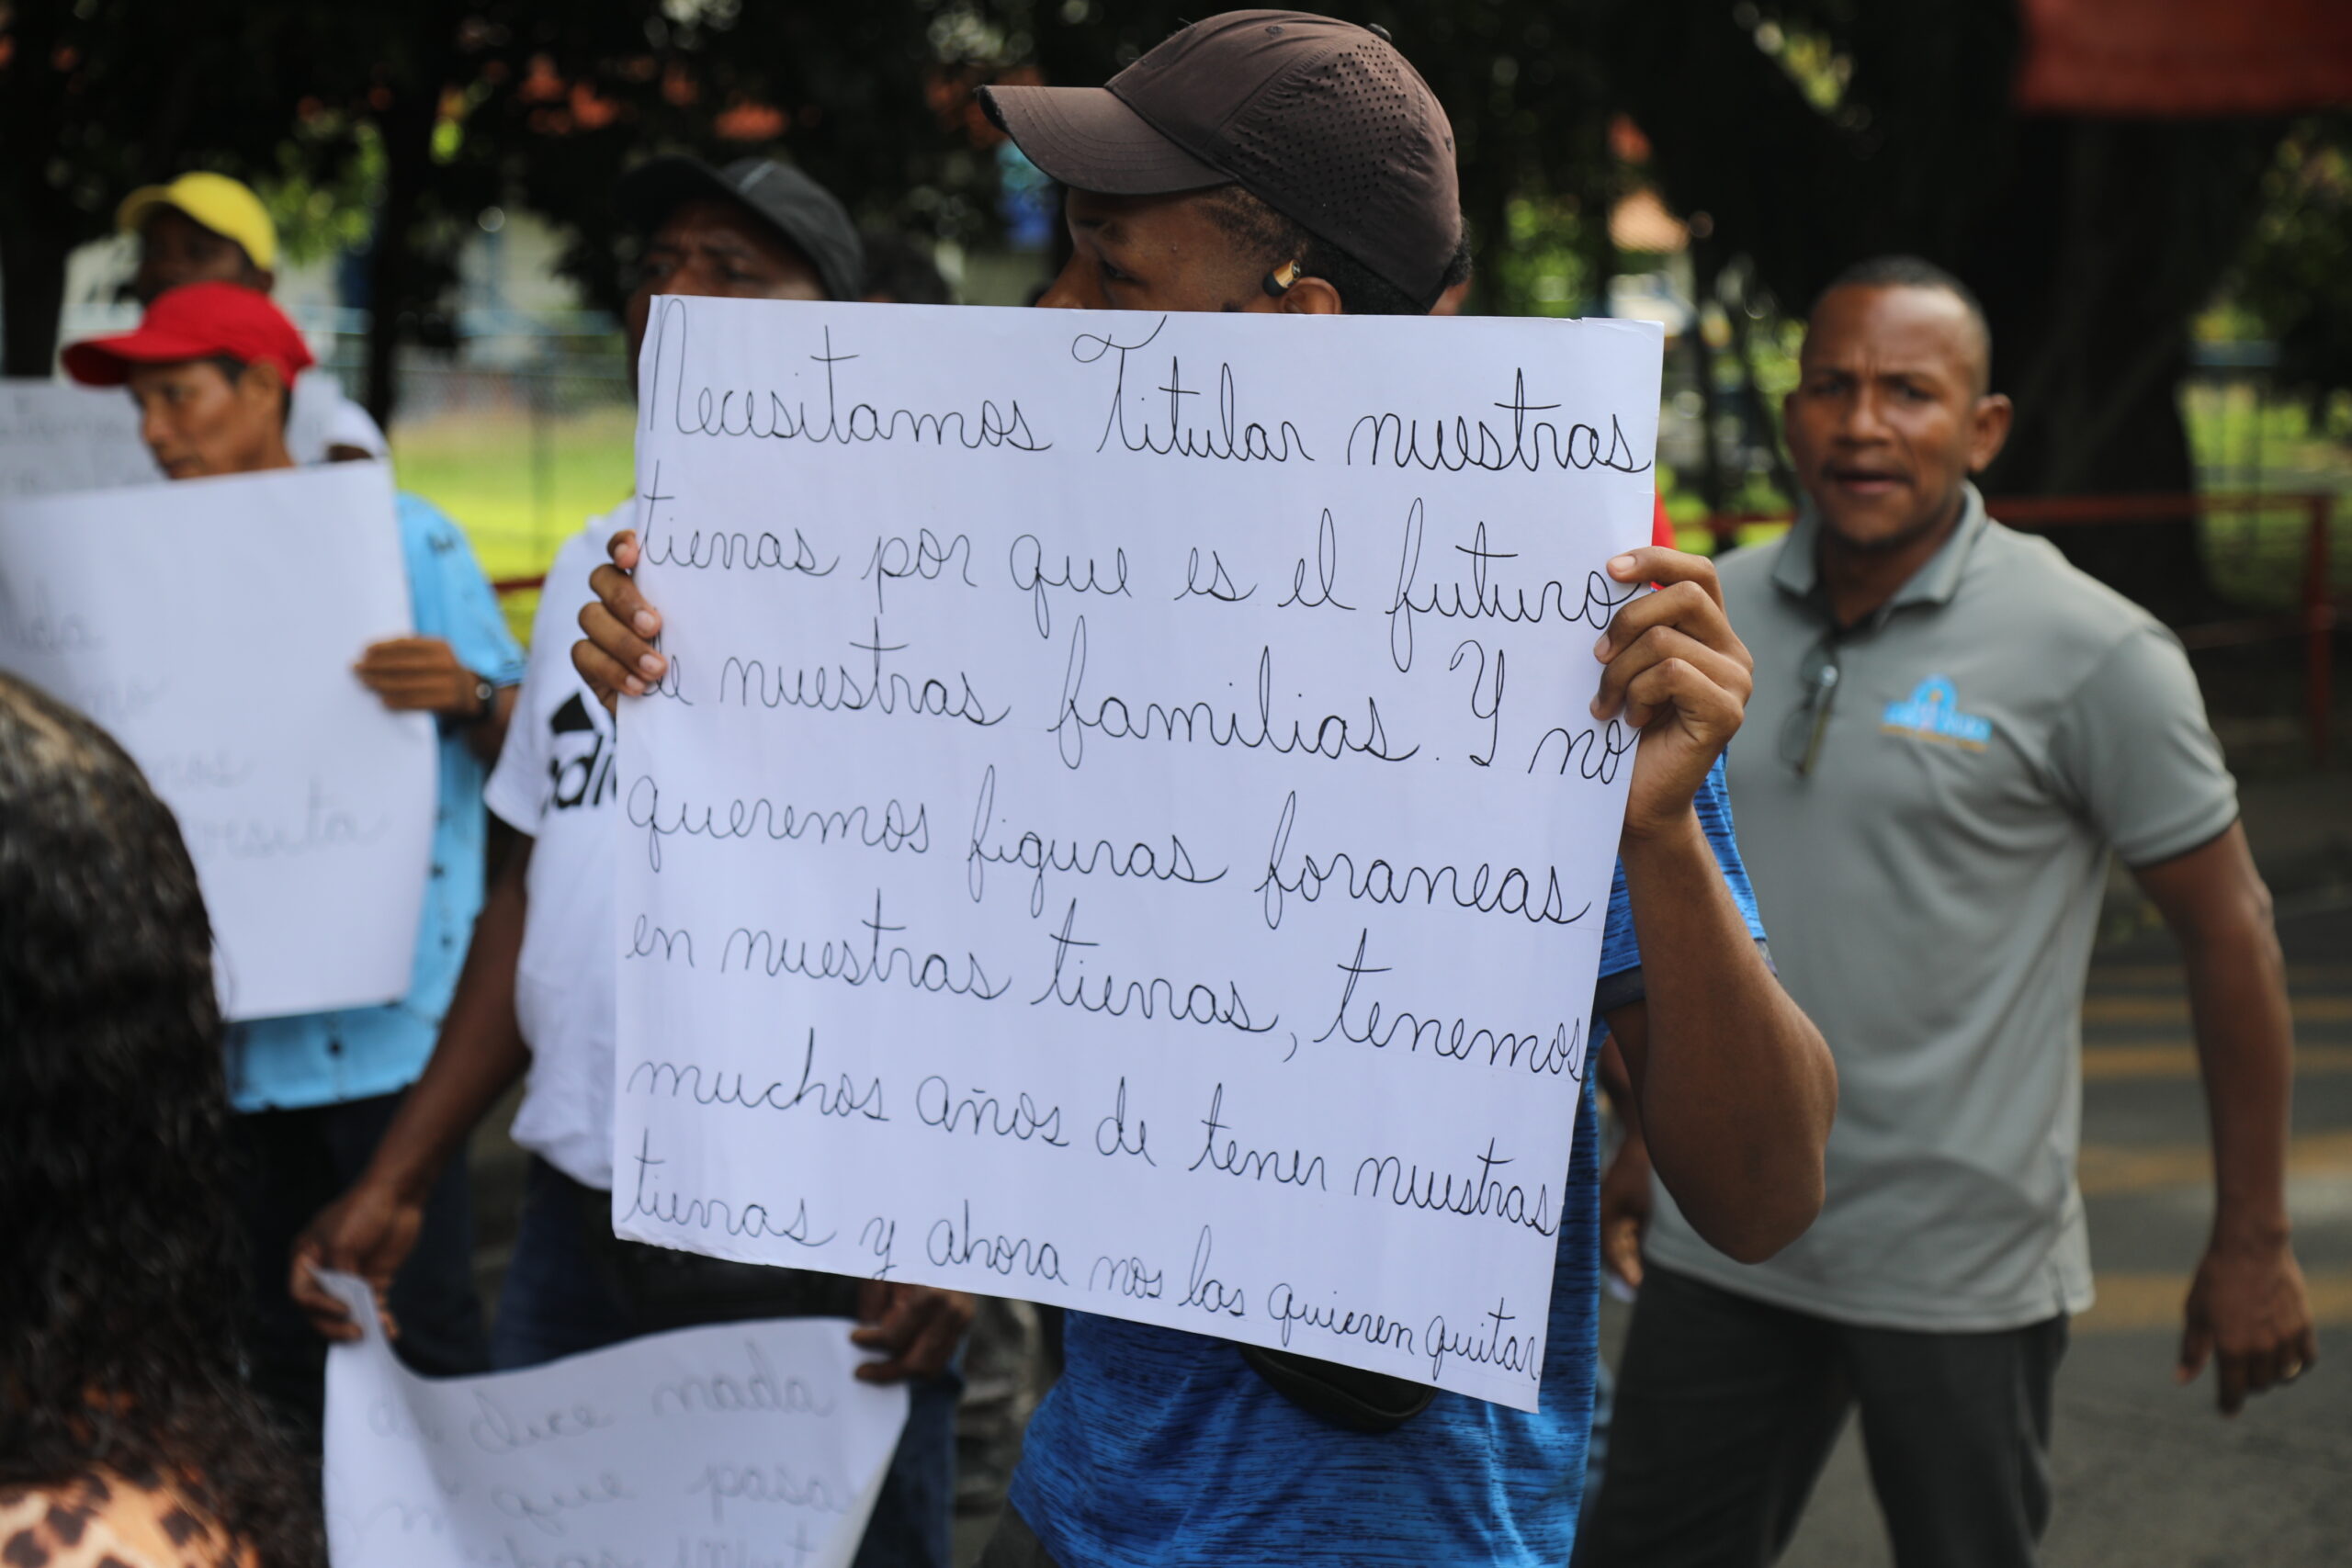 Necesitamos Titular nuestras
tierras por que es el futuro
de nuestras familias. Y no
queremos figuras foraneas
en nuestras tierras, tenemos
muchos años de tener nuestras
tierras y ahora nos las quieren quitar
dice nada
que pasa